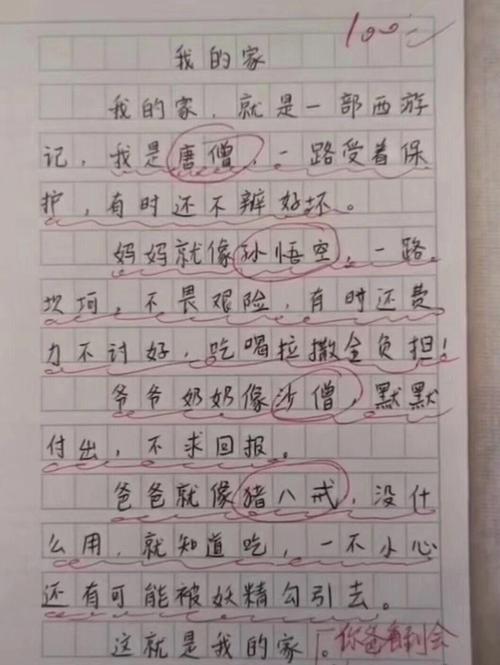 100
我的家
我的家，就是一部西游
记，我是唐僧，一路受着保
护，有时还不辨好坏。
妈妈就像孙悟空，一路
坎坷，不畏艰险，有时还费
力不讨好，吃喝拉撒全负担！
爷爷奶奶像沙僧，默默
付出，不求回报。
爸爸就像猪八戒，没什
么用，就知道吃，一不小心
还有可能被妖精勾引去。
这就是我的家。你爸看到会